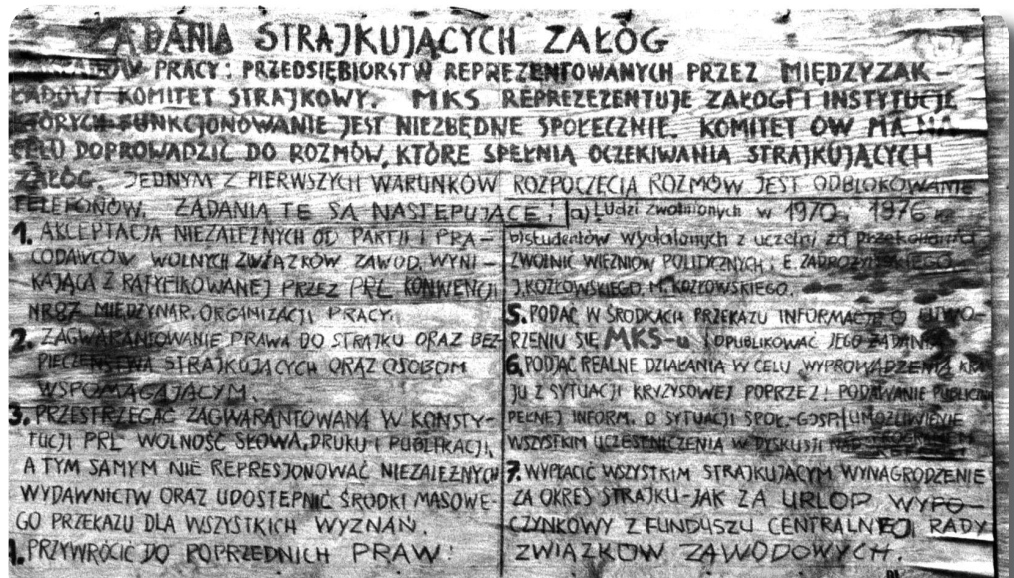 ŻĄDANIA STRAJKUJĄCYCH ZAŁÓG
PRACY: PRZEDSIĘBIORSTW REPREZENTOWANYCH PRZEZ MIĘDZYZAK-
ŁADOWY KOMITET STRAJKOWY. MKS REPREZEZENTUJE ZAŁOGI I INSTYTUCJE
KTÓRYCH FUNKCJONOWANIE JEST NIEZBĘDNE SPOŁECZNIE. KOMITET ÓW MA NA
CELU DOPROWADZIĆ DO ROZMÓW, KTÓRE SPEŁNIĄ OCZEKIWANIA STRAJKUJĄCYCH
ZAŁÓG. JEDNYM Z PIERWSZYCH WARUNKÓW ROZPOCZĘCIA ROZMÓW JEST ODBLOKOWANIE
TELEFONÓW. ŻĄDANIA TE SĄ NASTĘPUJĄCE:
1. AKCEPTACJA NIEZALEŻNYCH OD PARTII I PRA-
CODAWCÓW WOLNYCH ZWIĄZKÓW ZAWOD. WYNI-
KAJĄCA Z RATYFIKOWANEJ PRZEZ PRL KONWENCJI
NR 87 MIĘDZYNAR. ORGANIZACJI PRACY.
2. ZAGWARANTOWANIE PRAWA DO STRAJKU ORAZ BEZ-
PIECZEŃSTWA STRAJKUJĄCYCH ORAZ OSOBOM
WSPOMAGAJĄCYM.
3. PRZESTRZEGAĆ ZAGWARANTOWANĄ W KONSTY-
TUCJI PRL WOLNOŚĆ SŁOWA, DRUKU I PUBLIKACJI,
A TYM SAMYM NIE REPRESJONOWAĆ NIEZALEŻNYCH
WYDAWNICTW ORAZ UDOSTĘPNIĆ ŚRODKI MASOWE-
GO PRZEKAZU DLA WSZYSTKICH WYZNAŃ.
PRZYWRÓCIĆ DO POPRZEDNICH PRAW:
a) Ludzi zwolnionych w 1970 i 1976
b) studentów wydalonych z uczelni za przekonania
ZWOLNIĆ WIĘŹNIÓW POLITYCZNYCH: E. ZADROŻYŃSKIEGO
J. KOZŁOWSKIEGO, M. KOZŁOWSKIEGO.
5. PODAĆ W ŚRODKACH PRZEKAZU INFORMACJĘ O UTWO-
RZENIU SIĘ MKS-u I OPUBLIKOWAĆ JEGO ŻĄDANIA
6. PODJĄĆ REALNE DZIAŁANIA W CELU WYPROWADZENIA KRA-
JU Z SYTUACJI KRYZYSOWEJ POPRZEZ: PODAWANIE
PEŁNEJ INFORM. O SYTUACJI SPOŁ.-GOSP. UMOŻLIWIENIE
WSZYSTKIM UCZESTNICZENIA W DYSKUSJI NAD
7. WYPŁACIĆ WSZYSTKIM STRAJKUJĄCYM WYNAGRODZENIE
ZA OKRES STRAJKU-JAK ZA URLOP WYPO-
CZYNKOWY Z FUNDUSZU CENTRALNEJ RADY
ZWIĄZKÓW ZAWODOWYCH.